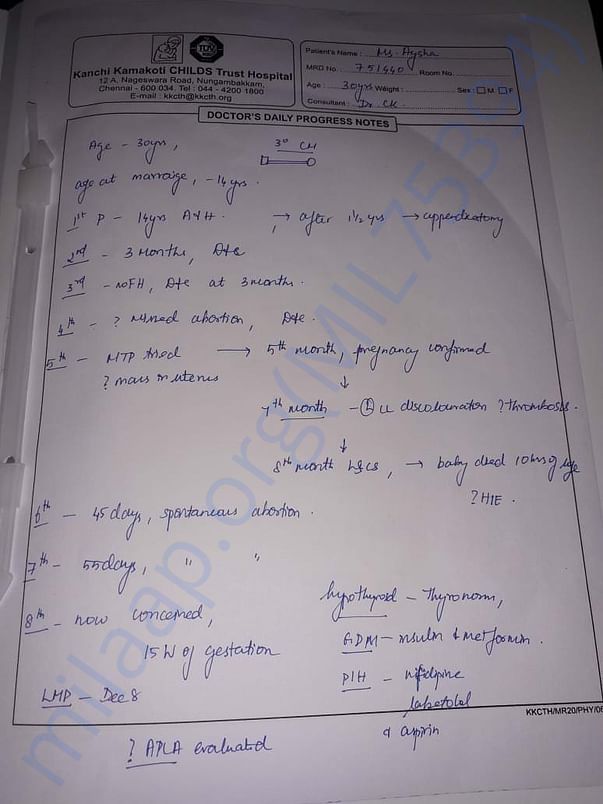 Kanchi Kamakoti CHILDS Trust Hospital
12 A, Nageswara Road, Nungambakkam,
Chennai - 600 034. Tel : 044 - 4200 1800
E-mail : kkcth@kkcth.org
TÜV
Patient's Name : Ms. Aysha
MRD No. 751440 Room No.
Age : 30yrs Weight : Sex : M F
Consultant : Dr CK.
DOCTOR'S DAILY PROGRESS NOTES
Age - 30yrs, 3° CM
age at marraige, - 14yrs.
1st P - 14yrs → after 1½ yrs → appendicatomy
2nd - 3 Months, D+C
3rd - no FH, D+C at 3 months.
4th - ? Missed abortion, D+C.
5th - MTP tried → 5th month, pregnancy confirmed
? mass in uterus
7th month - (L) LL discolouration ? thrombosis.
8th month LSCS, → baby died 10hrs of life
? HIE.
6th - 45 days, spontaneous abortion.
7th - 55 days, " "
8th - now concerned,
15W of gestation
LMP - Dec 8
hypothyroid - Thyronorm,
GDM - insulin & metformin.
PIH - nifidipine
labetolol
& aspirin
KKCTH/MR20/PHY/06
? APLA evaluated
milaap.org(MIL75394)